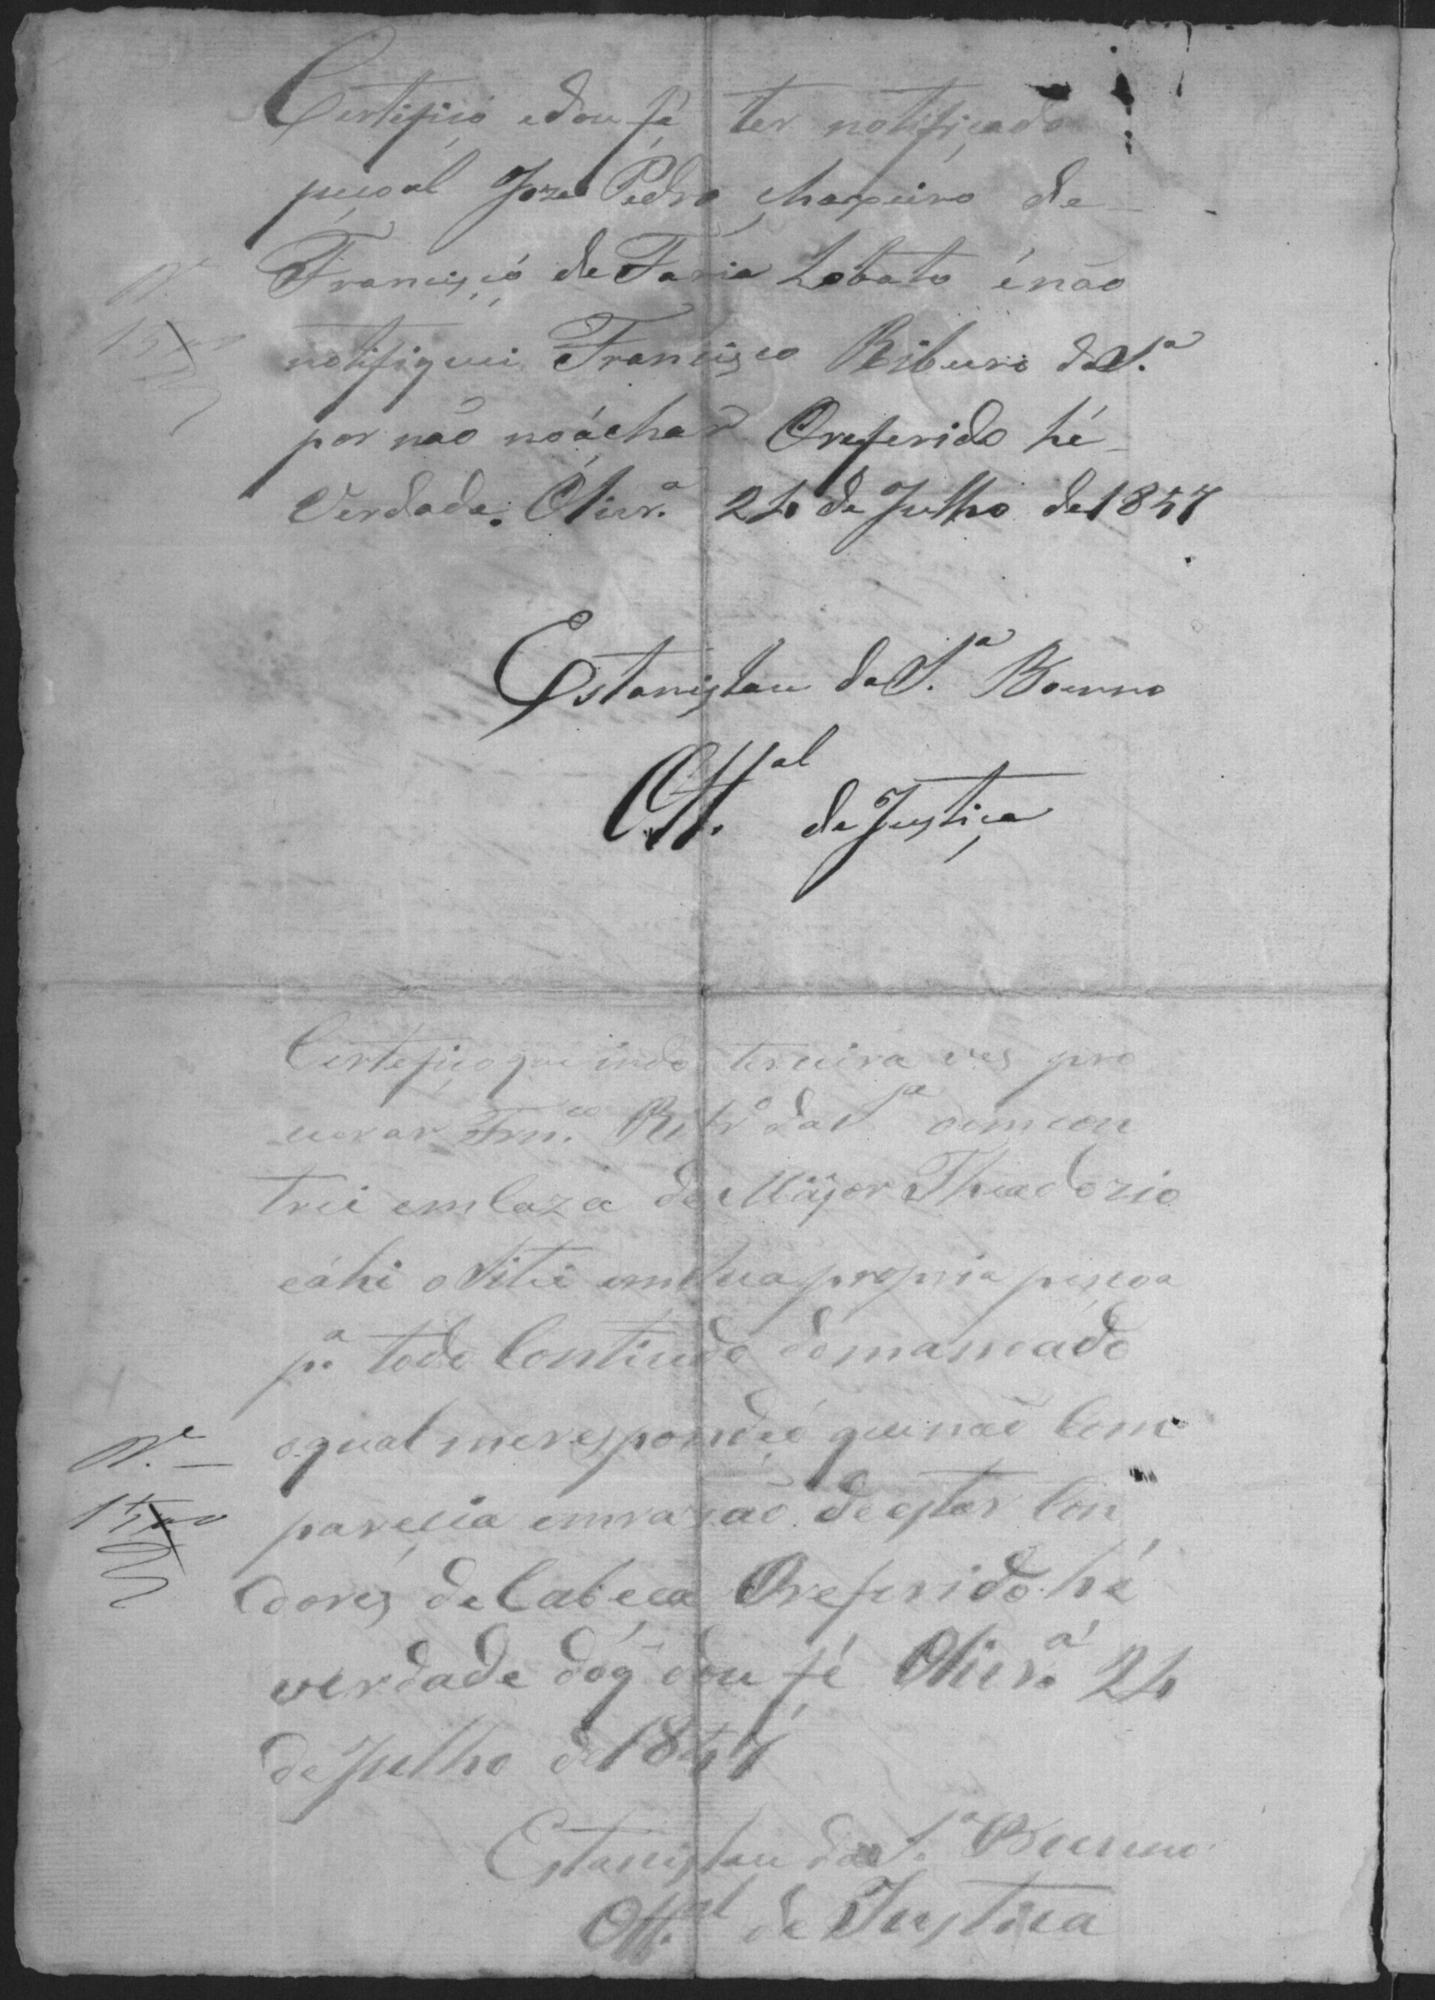 Certifico edou fé ter notificado
pecoal Joze Pedro chaveiro de
Francisco de Faria Lobato é não
notifiquei Francisco Ribeiro da S.ª
por não no áchar Oreferido hé
Verdade. Olivr.ª 24 de Julho de 1857
Estanislau da S.ª Boenno
Off.al de Justiça
Certefico que indo terceira ves pro
curar Frn.co Ribr.o da S.ª oemcon
trei em Caza do Major Theadozio
eáhi o Sitei em Sua propria pesoa
p.ª todo Contiudo do mandádo
oqual merespondeó quenão Com
parecia emrazão de estar Con
dores de Cabeca Oreferido hé
verdade dóq dou fé Olivr.ª 24
de Julho de 1857
Estanislau da S.ª Buenno
Off.al de Justica